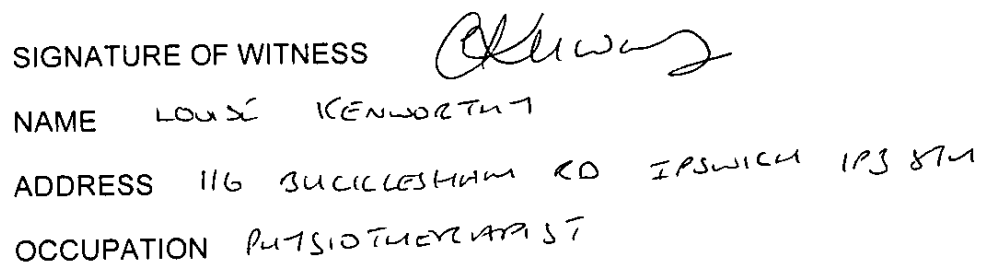 SIGNATURE OF WITNESS
NAME LOUISE KENWORTHY
ADDRESS 116 BUCKLESHAM RD IPSWICH IP3
OCCUPATION PHYSIOTHERAPIST